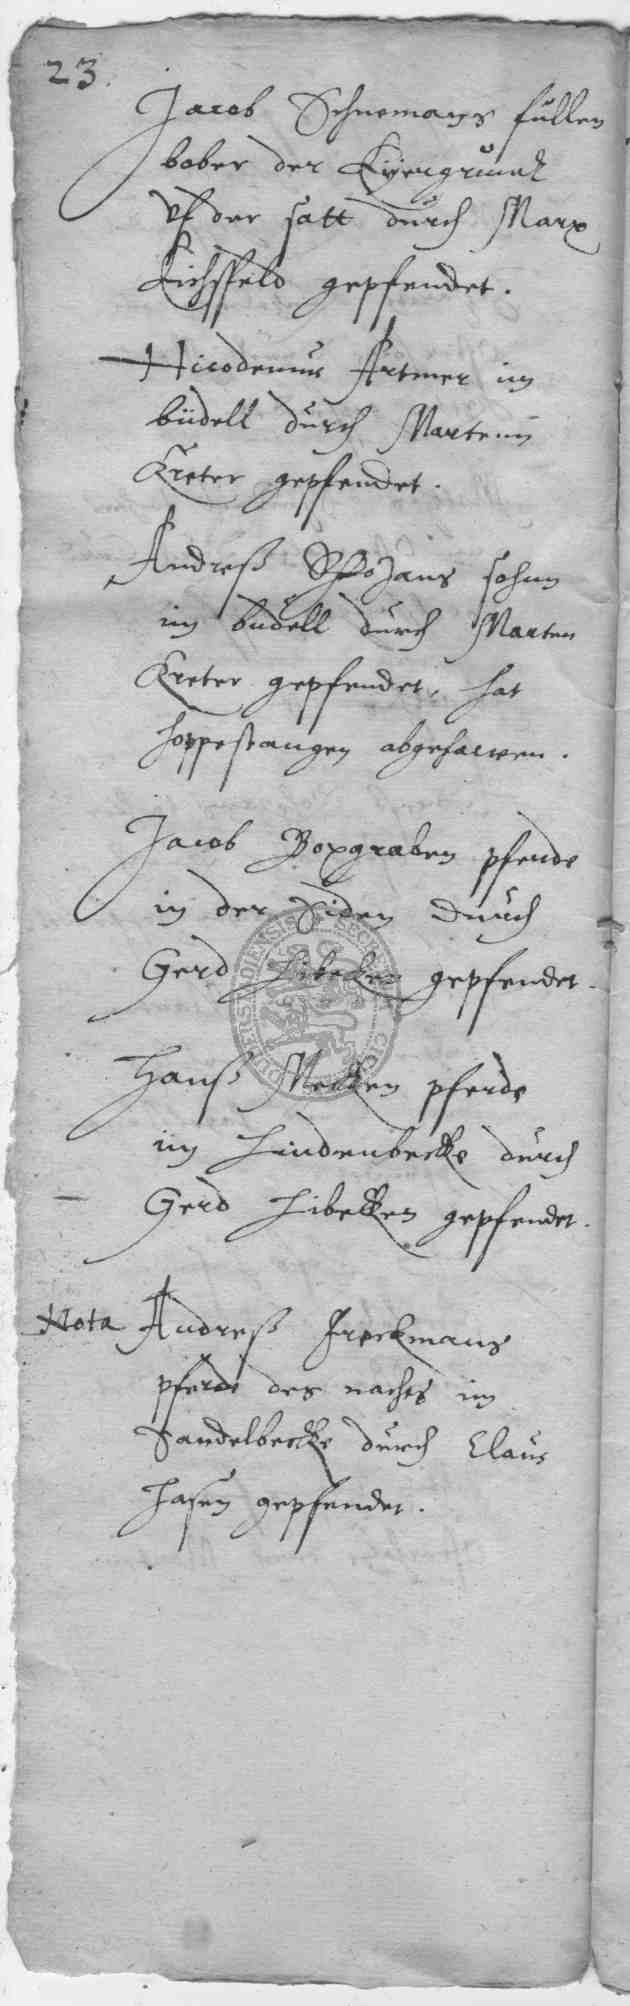 23.
Jacob Schnemans füllen
bober der
vf der satt durch Marx
Eichsfeld gepfendet.
Nicodemus Artmer im
büdell durch Marten
Kreter gepfendet.
Andreß sohnn
im büdell durch Marten
Kreter gepfendet, hat
hoppestangen abgehawen.
Jacob Boxgraben pferde
in der Siden durch
Gerd Libecken gepfendet.
Hanß Mecken pferde
im Lindenbecke durch
Gerd Libecken gepfendet.
Nota Andreß Freckmans
pferde des nachts im
Sandelbecke durch Claus
Hasen gepfendet.